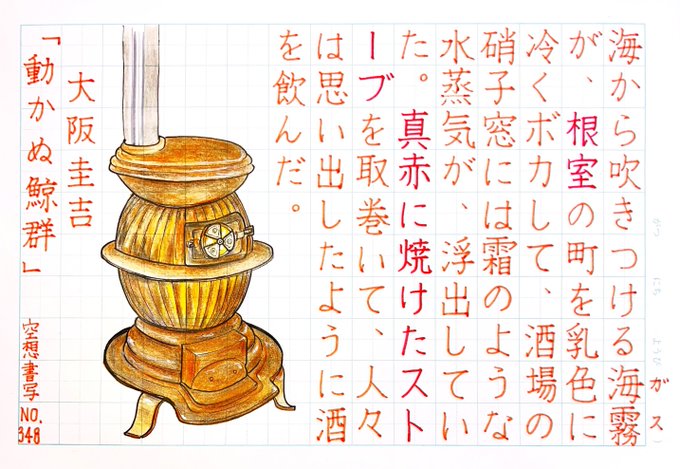 海から吹きつける海霧
ガス
が、根室の町を乳色に
冷くボカして、酒場の
硝子窓には霜のような
水蒸気が、浮出してい
た。真赤に焼けたスト
ーブを取巻いて、人々
は思い出したように酒
を飲んだ。
大阪圭吉
「動かぬ鯨群」
空想書写
NO.
348